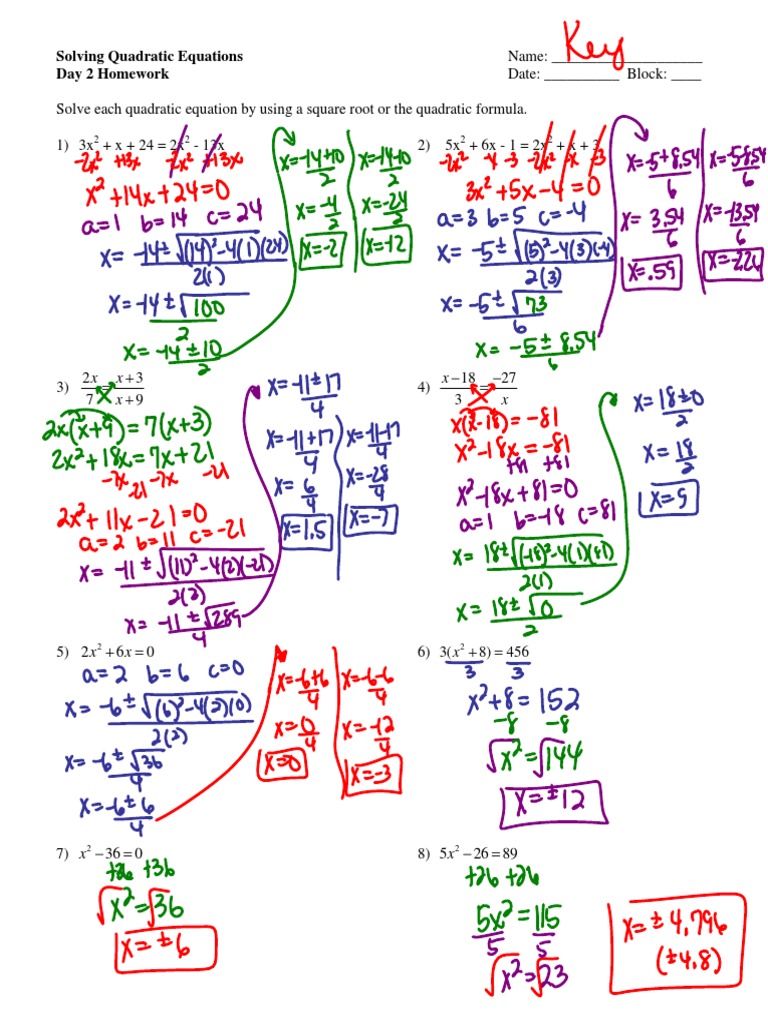 Solving Quadratic Equations
Name: Key
Day 2 Homework
Date: __________ Block: ____
Solve each quadratic equation by using a square root or the quadratic formula.
1) 3x² + x + 24 = 2x² - 13x
-2x² +13x -2x² +13x
x² + 14x + 24 = 0
a=1 b=14 c=24
x = -14 ± √(14)² - 4(1)(24) / 2(1)
x = -14 ± √100 / 2
x = -14 ± 10 / 2
x = -14+10 / 2
x = -4 / 2
x = -2
x = -14-10 / 2
x = -24 / 2
x = -12
2) 5x² + 6x - 1 = 2x² + x + 3
-2x² -x -3 -2x² -x -3
3x² + 5x - 4 = 0
a=3 b=5 c=-4
x = -5 ± √(5)² - 4(3)(-4) / 2(3)
x = -5 ± √73 / 6
x = -5 ± 8.54 / 6
x = -5 + 8.54 / 6
x = 3.54 / 6
x = .59
x = -5-8.54 / 6
x = -13.54 / 6
x = -2.26
3) 2x / 7 = x+3 / x+9
2x(x+9) = 7(x+3)
2x² + 18x = 7x + 21
-7x -21 -7x -21
2x² + 11x - 21 = 0
a=2 b=11 c=-21
x = -11 ± √(11)² - 4(2)(-21) / 2(2)
x = -11 ± √289 / 4
x = -11 ± 17 / 4
x = -11+17 / 4
x = 6 / 4
x = 1.5
x = -11-17 / 4
x = -28 / 4
x = -7
4) x-18 / 3 = -27 / x
x(x-18) = -81
x² - 18x = -81
+81 +81
x² - 18x + 81 = 0
a=1 b=-18 c=81
x = 18 ± √(-18)² - 4(1)(81) / 2(1)
x = 18 ± √0 / 2
x = 18 ± 0 / 2
x = 18 / 2
x = 9
5) 2x² + 6x = 0
a=2 b=6 c=0
x = -6 ± √(6)² - 4(2)(0) / 2(2)
x = -6 ± √36 / 4
x = -6 ± 6 / 4
x = -6+6 / 4
x = 0 / 4
x = 0
x = -6-6 / 4
x = -12 / 4
x = -3
6) 3(x² + 8) = 456
3 3
x² + 8 = 152
-8 -8
√x² = √144
x = ±12
7) x² - 36 = 0
+36 +36
√x² = √36
x = ±6
8) 5x² - 26 = 89
+26 +26
5x² = 115
5 5
√x² = √23
x = ± 4.796
(±4.8)